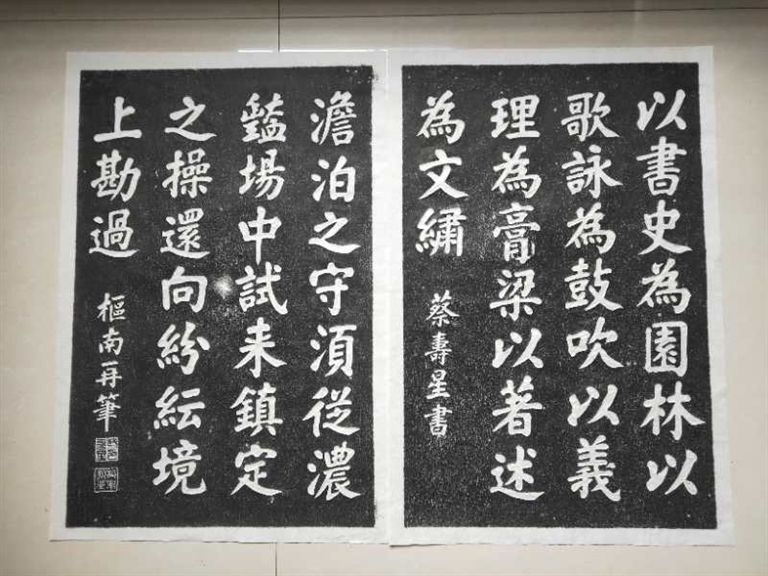 以書史為園林以
歌詠為鼓吹以義
理為膏梁以著述
為文繡
蔡壽星書
澹泊之守須從濃
豔場中試来鎮定
之操還向紛紜境
上勘過
樞南再筆